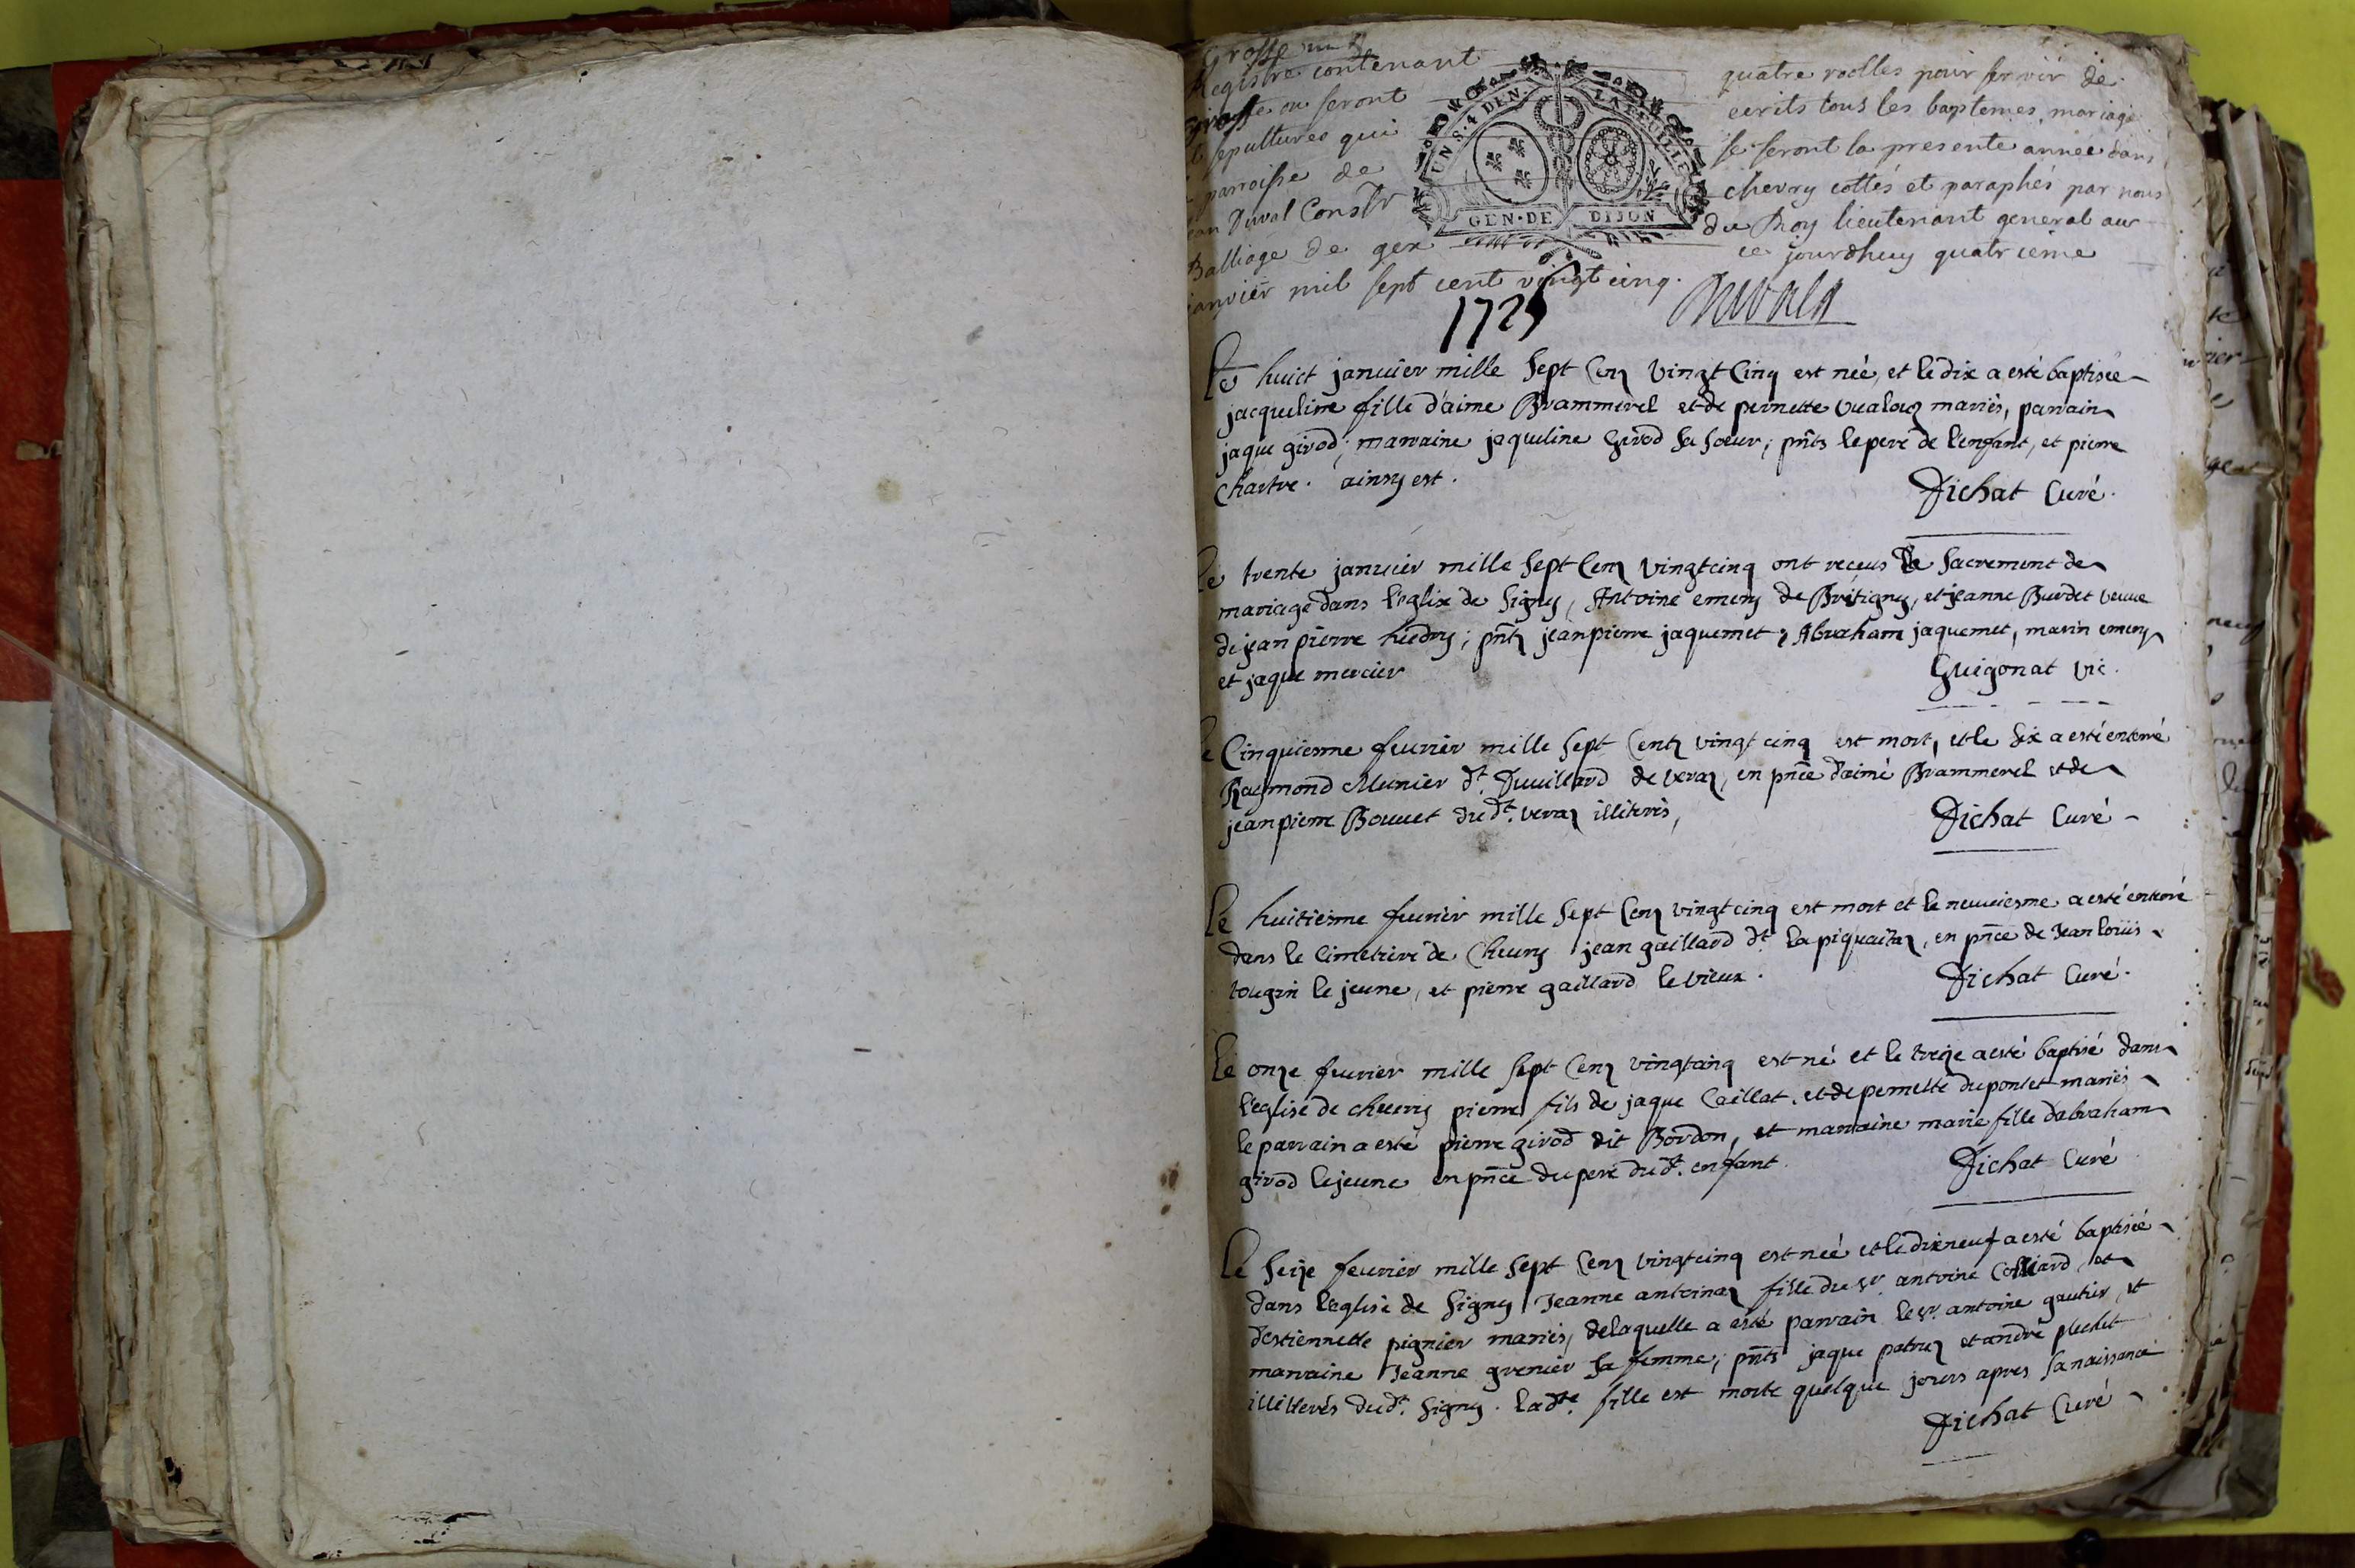 Grosse
Registre contenant quatre roolles pour servir de
grosse ou seront ecrits tous les baptemes, mariage
et sepultures qui se feront la presente année dans
parroisse de chevry cottés et paraphés par nous
Jean Duval Consr du Roy lieutenant general au
Balliage de gex ce jourdhuy quatrieme
janvier mil sept cent vingt cinq. Duval
UN S. 4 DEN. LA FEUILLE
GEN. DE DIJON
1725
Le huict januier mille Sept Cenz Vingt Cinq est née, et le dix a esté baptisée
jacqueline fille d'aime Brammerel et de pernette vualouz mariés, parrain
jaque girod; marraine jaqueline Girod Sa Soeur; pnts le pere de l'enfant, et pierre
Chartre. ainsy est. Dichat Curé.
Le trente januier mille Sept Cenz Vingtcinq ont receus le Sacrement de
mariage dans l'eglise de Signy, Antoine emery de Brétigny, et jeanne Burdet veuue
de jean pierre ; pntz jeanpierre jaquemet, Abraham jaquemet, marin emery
et jaque mercier Guigonat vic.
Le Cinquiesme feurier mille Sept Centz vingt cinq est mort, et le Six a esté enterré
Raymond Munier dt. Duuillard de veraz, en pnce d'aimé Brammerel et de
jeanpierre Bouuet dudt. veraz illiterés, Dichat Curé
Le huitiesme feurier mille Sept Cenz vingtcinq est mort et le neuuiesme a esté enterré
dans le Cimetiere de Cheury jean gaillard dt. la , en pnce de Jean loüis
tougin le jeune, et pierre gaillard le vieux. Dichat Curé.
Le onze feurier mille Sept Cenz vingtcinq est né et le treize a esté baptisé dans
l'eglise de cheury pierre fils de jaque Caillat. et de pernette duponlet mariés
le parrain a esté pierre girod dit Bordon, et marraine marie fille d'abraham
girod le jeune en pnce du pere dudt. enfant. Dichat Curé
Le Seize feurier mille Sept Cenz vingtcinq est née et le dixneuf a esté baptisée
dans l'eglise de Signy Jeanne antoinaz fille du sr. antoine Colliard, et
d'estiennette pignier mariés, de laquelle a esté parrain le sr. antoine gautier, et
marraine Jeanne grenier Sa femme; pnts jaque patruz et andré pluchet
illitterés dudt. Signy. ladte. fille est morte quelque jours apres Sa naissance
Dichat Curé